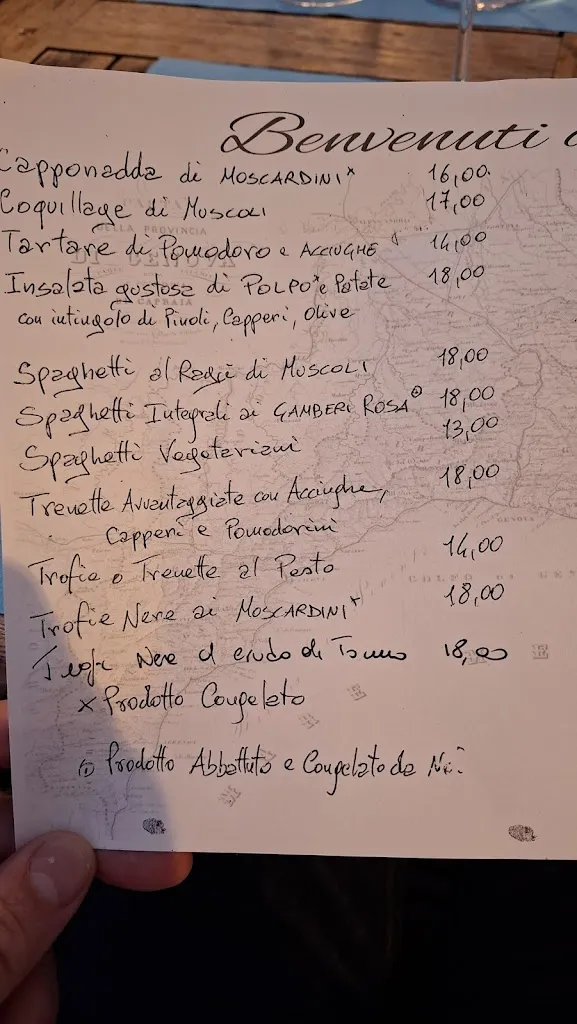 Benvenuti a
Capponadda di MOSCARDINI* 16,00
Coquillage di MUSCOLI 17,00
Tartare di Pomodoro e ACCIUGHE 14,00
Insalata gustosa di POLPO* e Patate 18,00
con intingolo di Pinoli, Capperi, Olive
Spaghetti al Ragù di MUSCOLI 18,00
Spaghetti Integrali ai GAMBERI ROSA 18,00
Spaghetti Vegetariani 13,00
Trenette Avvantaggiate con Acciughe, 18,00
Capperi e Pomodorini
Trofie o Trenette al Pesto 14,00
Trofie Nere ai MOSCARDINI* 18,00
Trofie Nere al crudo di Tonno 18,00
x Prodotto Congelato
Prodotto Abbattuto e Congelato da Noi